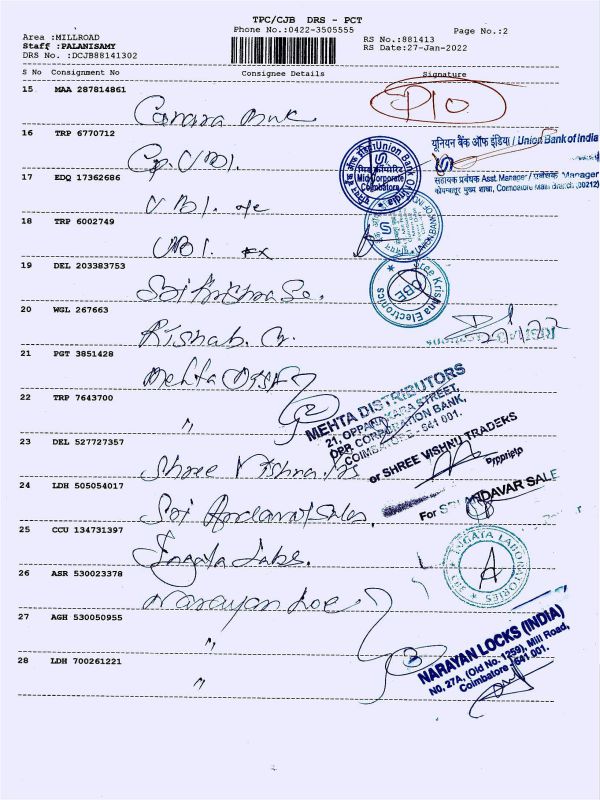 TPC/CJB DRS - PCT
Phone No.:0422-3505555
Page No.:2
Area :MILLROAD
Staff :PALANISAMY
DRS No. :DCJB88141302
RS No.:881413
RS Date:27-Jan-2022
S No Consignment No Consignee Details Signature
15 MAA 287814861
Canara Bank
16 TRP 6770712
यूनियन बैंक ऑफ इंडिया / Union Bank of India
Union Bank Of India
Mid Corporate
Coimbatore
सहायक प्रबंधक Asst. Manager / प्रबंधक Manager
कोयम्बतूर मुख्य शाखा, Coimbatore Main Branch
17 EDQ 17362686
UBI.
18 TRP 6002749
UBI.
19 DEL 203383753
Sri Krishna
Sree Krishna Electronics
CBE
20 WGL 267663
Rishab.
27/1/22
21 PGT 3851428
Mehta
MEHTA DISTRIBUTORS
21, OPPANAKARA STREET,
OPP. CORPORATION BANK,
COIMBATORE - 641 001.
22 TRP 7643700
"
23 DEL 527727357
Shree Vishnu
or SHREE VISHNU TRADERS
24 LDH 505054017
Sri Andavar Sales.
For SRI ANDAVAR SALE
25 CCU 134731397
Ingata Labs.
INGATA LABORATORIES
26 ASR 530023378
Narayan Loc
27 AGH 530050955
"
NARAYAN LOCKS (INDIA)
NO, 27A, (Old No. 1259), Mill Road,
Coimbatore - 641 001.
28 LDH 700261221
"